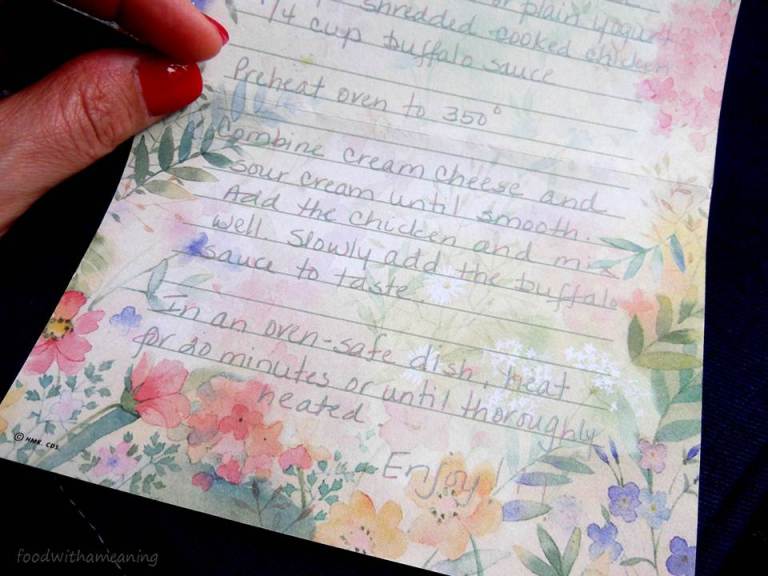 or plain yogurt
shredded cooked chicken
1/4 cup buffalo sauce
Preheat oven to 350°
Combine cream cheese and
sour cream until smooth.
Add the chicken and mix
well. Slowly add the buffalo
sauce to taste.
In an oven-safe dish, heat
for 20 minutes or until thoroughly
heated.
Enjoy!
© HMK. CDS.
foodwithameaning